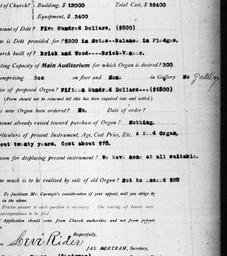 of Church? Building, $ 12000 Total Cost, $ 15400
Equipment, $ 3400
mount of Debt? Five Hundred Dollars, ($500)
is Debt provided for? $300 in Notes--Balance in Pledges.
rch Built of? Brick and Wood---Brick-Veneer.
ting Capacity of Main Auditorium for which Organ is desired? 300
omprising 300 on floor and None in Gallery. No gallery
ice of proposed Organ? Fifteen Hundred Dollars---($1500)
(Form should not be returned till this has been required into and settled.)
new Organ been ordered? No. Date of order?
ount already raised toward purchase of Organ? Nothing.
rticulars of present Instrument, Age, Cost Price, Etc. A Reed Organ,
bout twenty years. Cost about $75.
son for displacing present instrument? We have none at all suitable.
ow much is to be realized by sale of old Organ? Not to exceed $25
To facilitate Mr. Carnegie's consideration of your appeal, will you oblige by
in the above
Precise answer to each question is necessary. The leaving of blanks may
correspondence to be filed
Application should come from Church authorities and not from private
Respectfully,
Levi Rider
JAS. BERTRAM, Secretary,